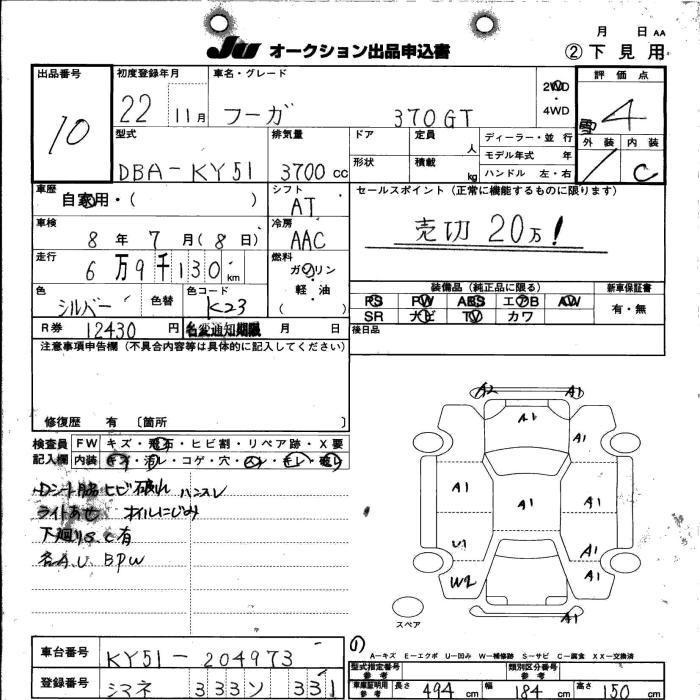 月 日 AA
JU オークション出品申込書 ②下見用
出品番号 初度登録年月 車名・グレード 評価点
10 22 11月 フーガ 370GT 2WD ・ 4WD 4
型式 排気量 ドア 定員 人 ディーラー・並行 外装 内装
形状 積載 kg モデル年式 年
DBA-KY51 3700cc ハンドル 左・右 C
車歴 自家用・( ) シフト AT セールスポイント(正常に機能するものに限ります)
車検 8年 7月(8日) 冷房 AAC 売切 20万!
走行 6万9千130km 燃料 ガソリン・軽油 ( )
装備品(純正品に限る) 新車保証書
色 シルバー 色替 色コード K23 PS PW ABS エアB AW 有・無
SR ナビ TV カワ
R券 12430円 名変通知期限 月 日 後日品
注意事項申告欄(不具合内容等は具体的に記入してください)
修復歴 有 〔箇所 〕
検査員記入欄 FW キズ・飛石・ヒビ割・リペア跡・X要
内装 キズ・汚レ・コゲ・穴・
ヒビ破れ ハンスレ
ライトあせ オイルにじみ
下廻りS.C有
各A.U. BPW
A2 A1
A1 A1
A1 A1 A1
U1 A1
W2 A1
A1
スペア
車台番号 KY51-204973
登録番号 シマネ 333 ソ 331
(1)
A-キズ E-エクボ U-凹み W-補修跡 S-サビ C-腐食 XX-交換済
型式指定番号 参考 類別区分番号 参考
車庫証明用 参考 長さ 494cm 幅 184cm 高さ 150cm